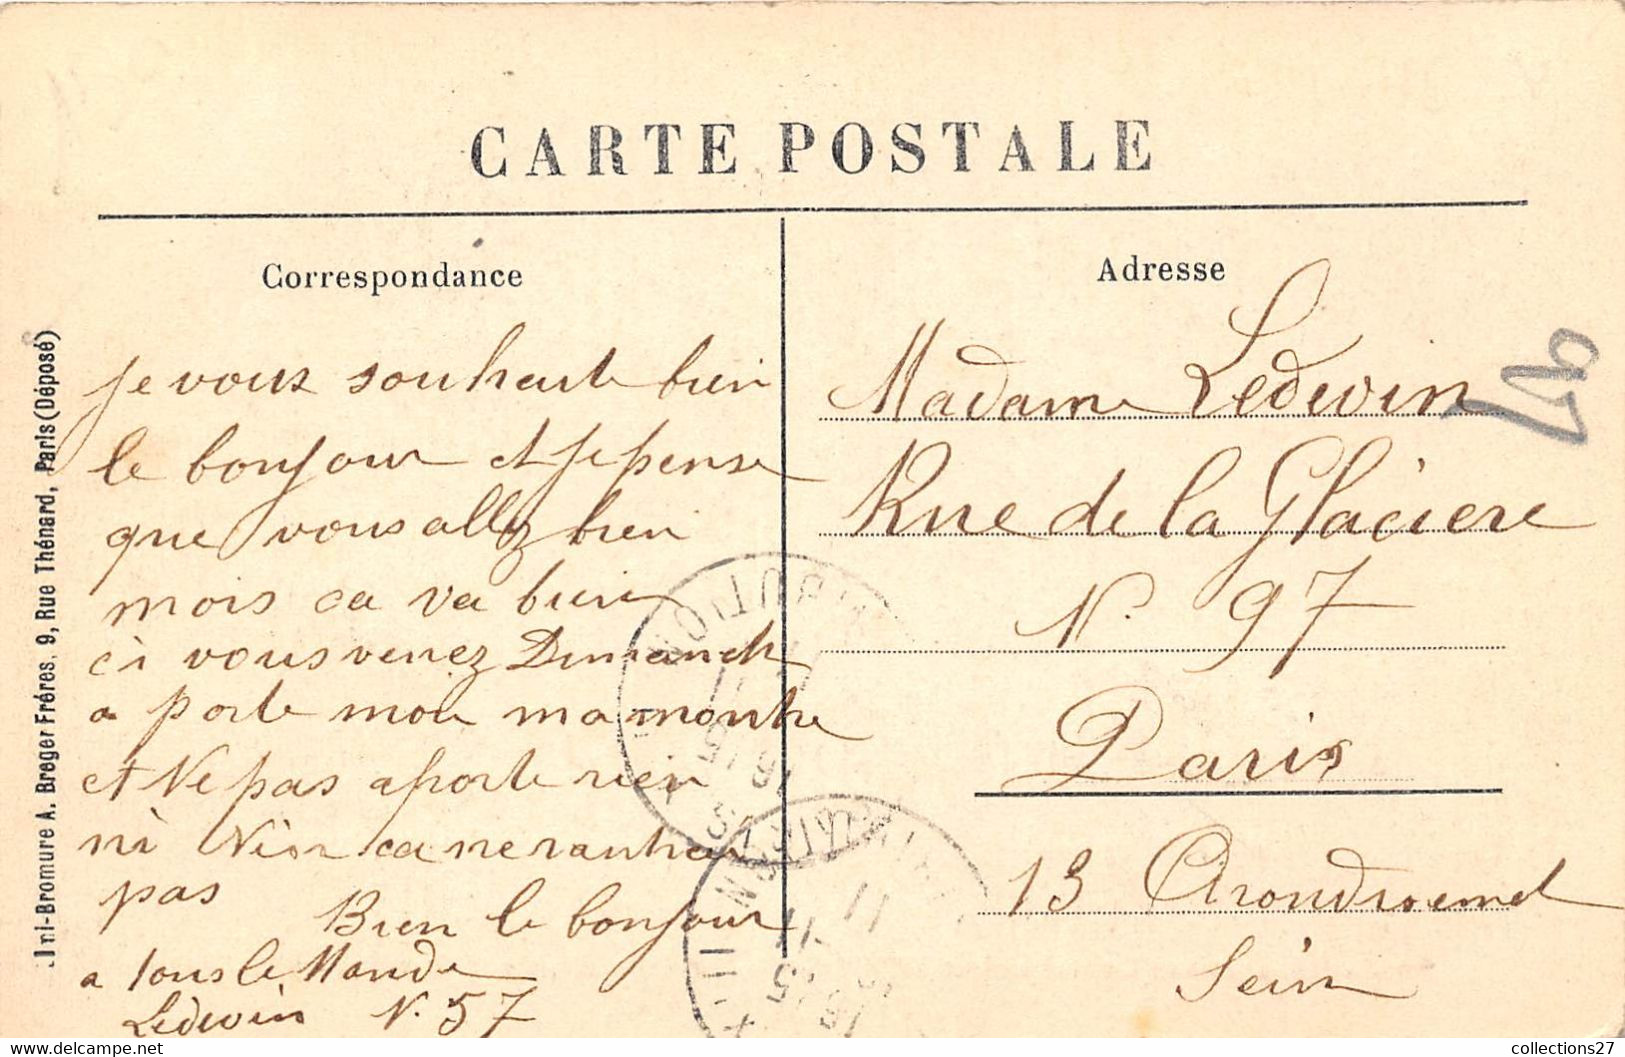 CARTE POSTALE
Correspondance
Adresse
Uni-Bromure A. Breger Fréres, 9, Rue Thénard, Paris (Déposé)
Je vous souhaite bien
le bonjour et je pense
que vous allez bien
mois ca va bien
ci vous venez Dimanch
a porte moi ma montre
et Ne pas aporte rien
ni Nion ca ne rantre
pas
Bien le bonjour
a tous le Monde
Ledevin N. 57
Madame Ledevin
Rue de la Glaciere
N. 97
Paris
13 Arondisemet
Seine
collections27